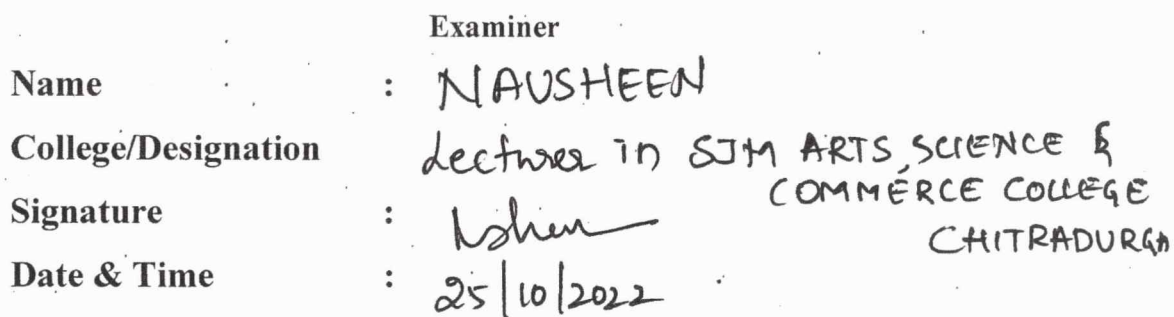 Examiner
Name : NAUSHEEN
College/Designation Lecturer in SJM ARTS, SCIENCE &
COMMERCE COLLEGE
Signature :
CHITRADURGA
Date & Time : 25/10/2022